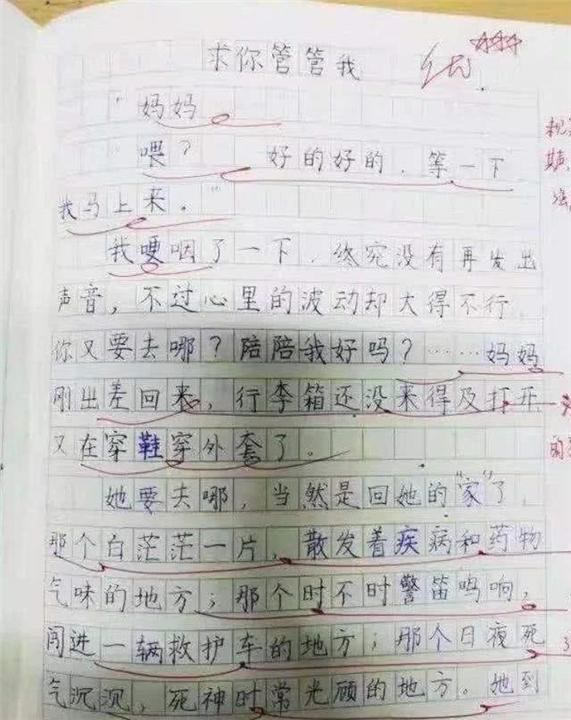 求你管管我
优
“妈妈。
喂？ 好的好的，等一下
我马上来。”
我哽咽了一下，终究没有再发出
声音，不过心里的波动却大得不行
你又要去哪？陪陪我好吗？……妈妈
刚出差回来，行李箱还没来得及打开
又在穿鞋穿外套了。
她要去哪，当然是回她的“家”了，
那个白茫茫一片，散发着疾病和药物
气味的地方；那个时不时警笛鸣响，
闯进一辆救护车的地方；那个日夜死
气沉沉，死神时常光顾的地方。她到